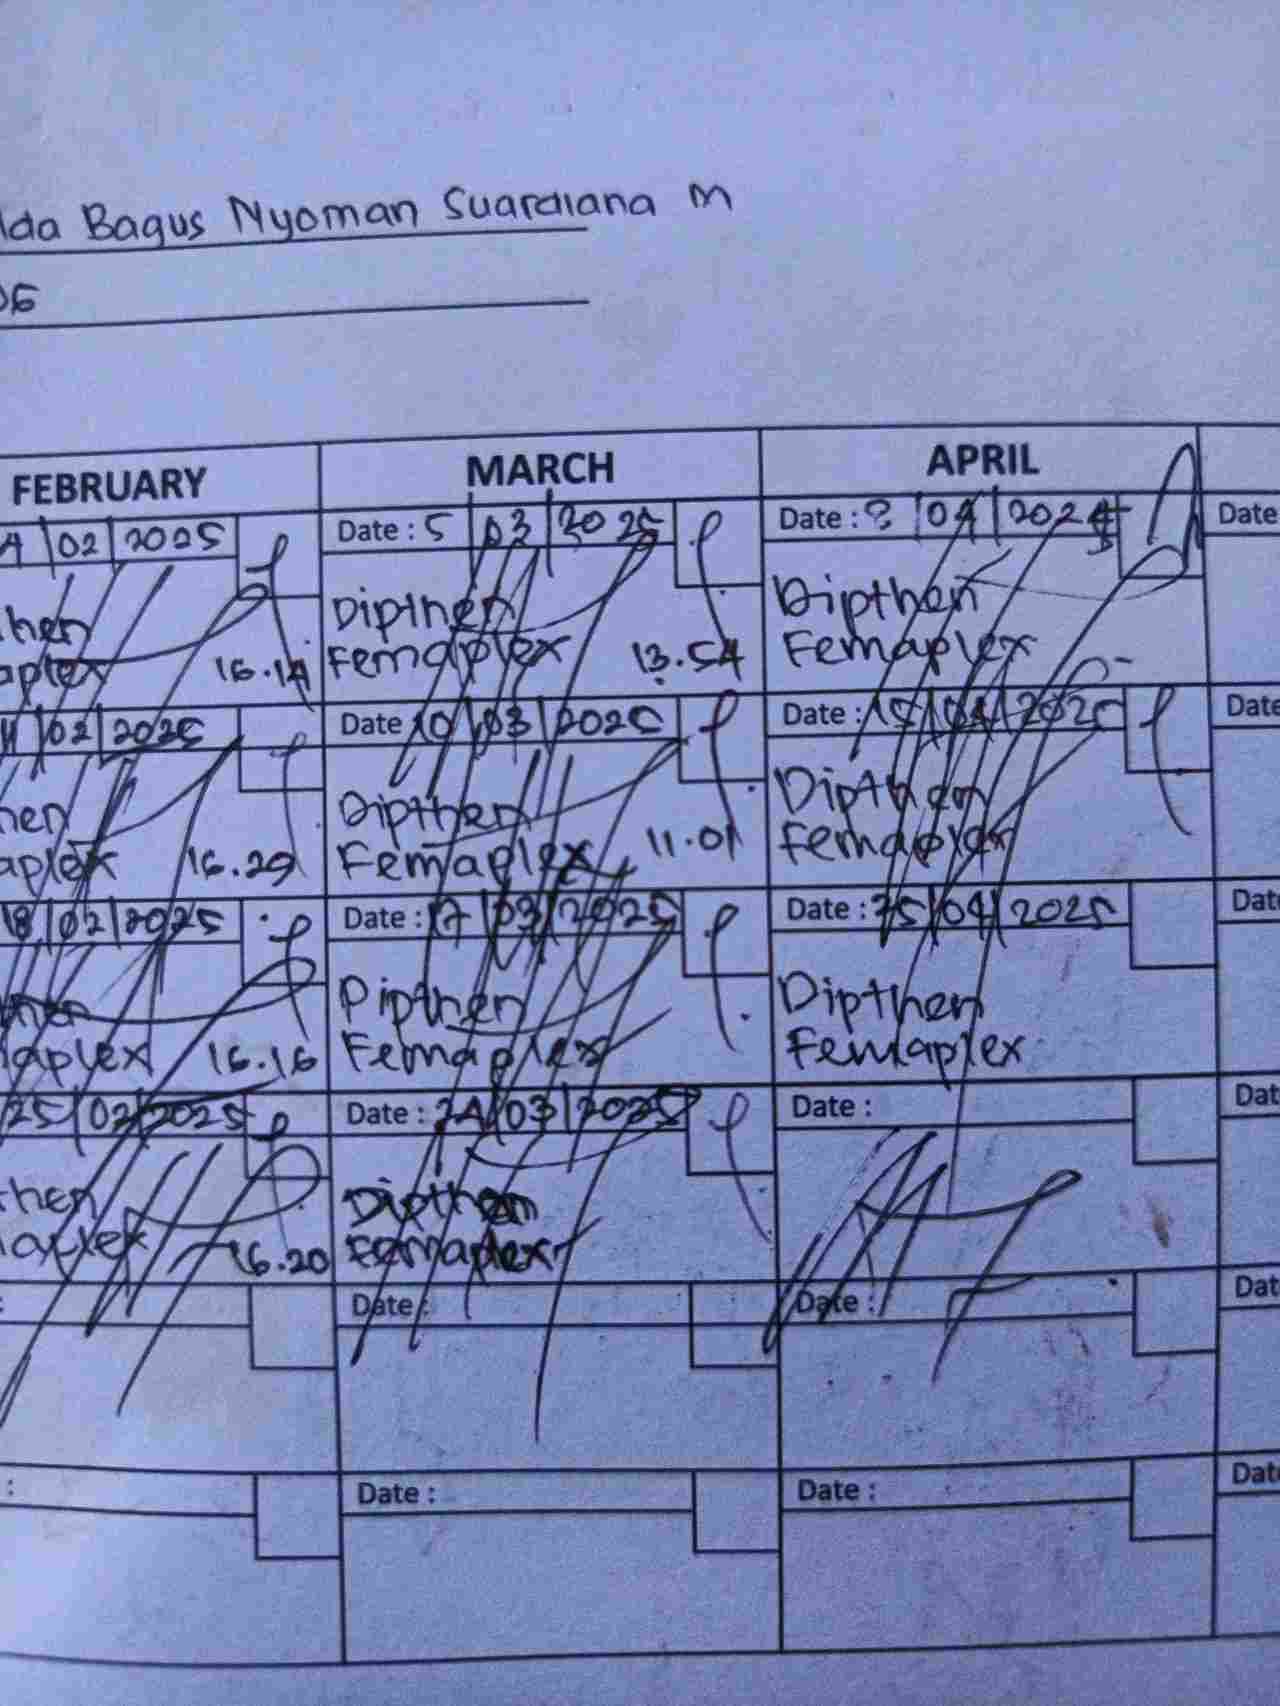 Ida Bagus Nyoman Suardiana M
06
FEBRUARY MARCH APRIL
4 | 02 | 2025 Date : 5 | 03 | 2025 Date : 8 | 04 | 2024 Date
then Dipthen Dipthen
aplex 16.14 Femaplex 13.54 Femaplex
11 | 02 | 2025 Date 10 | 03 | 2025 Date : 15 | 04 | 2025 Date
hen Dipthen Dipthen
aplex 16.29 Femaplex 11.01 Femaplex
18 | 02 | 2025 Date : 17 | 03 | 2025 Date : 25 | 04 | 2025 Date
then Dipthen Dipthen
maplex 16.16 Femaplex Femaplex
25 | 02 | 2025 Date : 24 | 03 | 2025 Date : Dat
then Dipthen
aplex 16.20 Femaplex
: Date : Date : Dat
: Date : Date : Dat